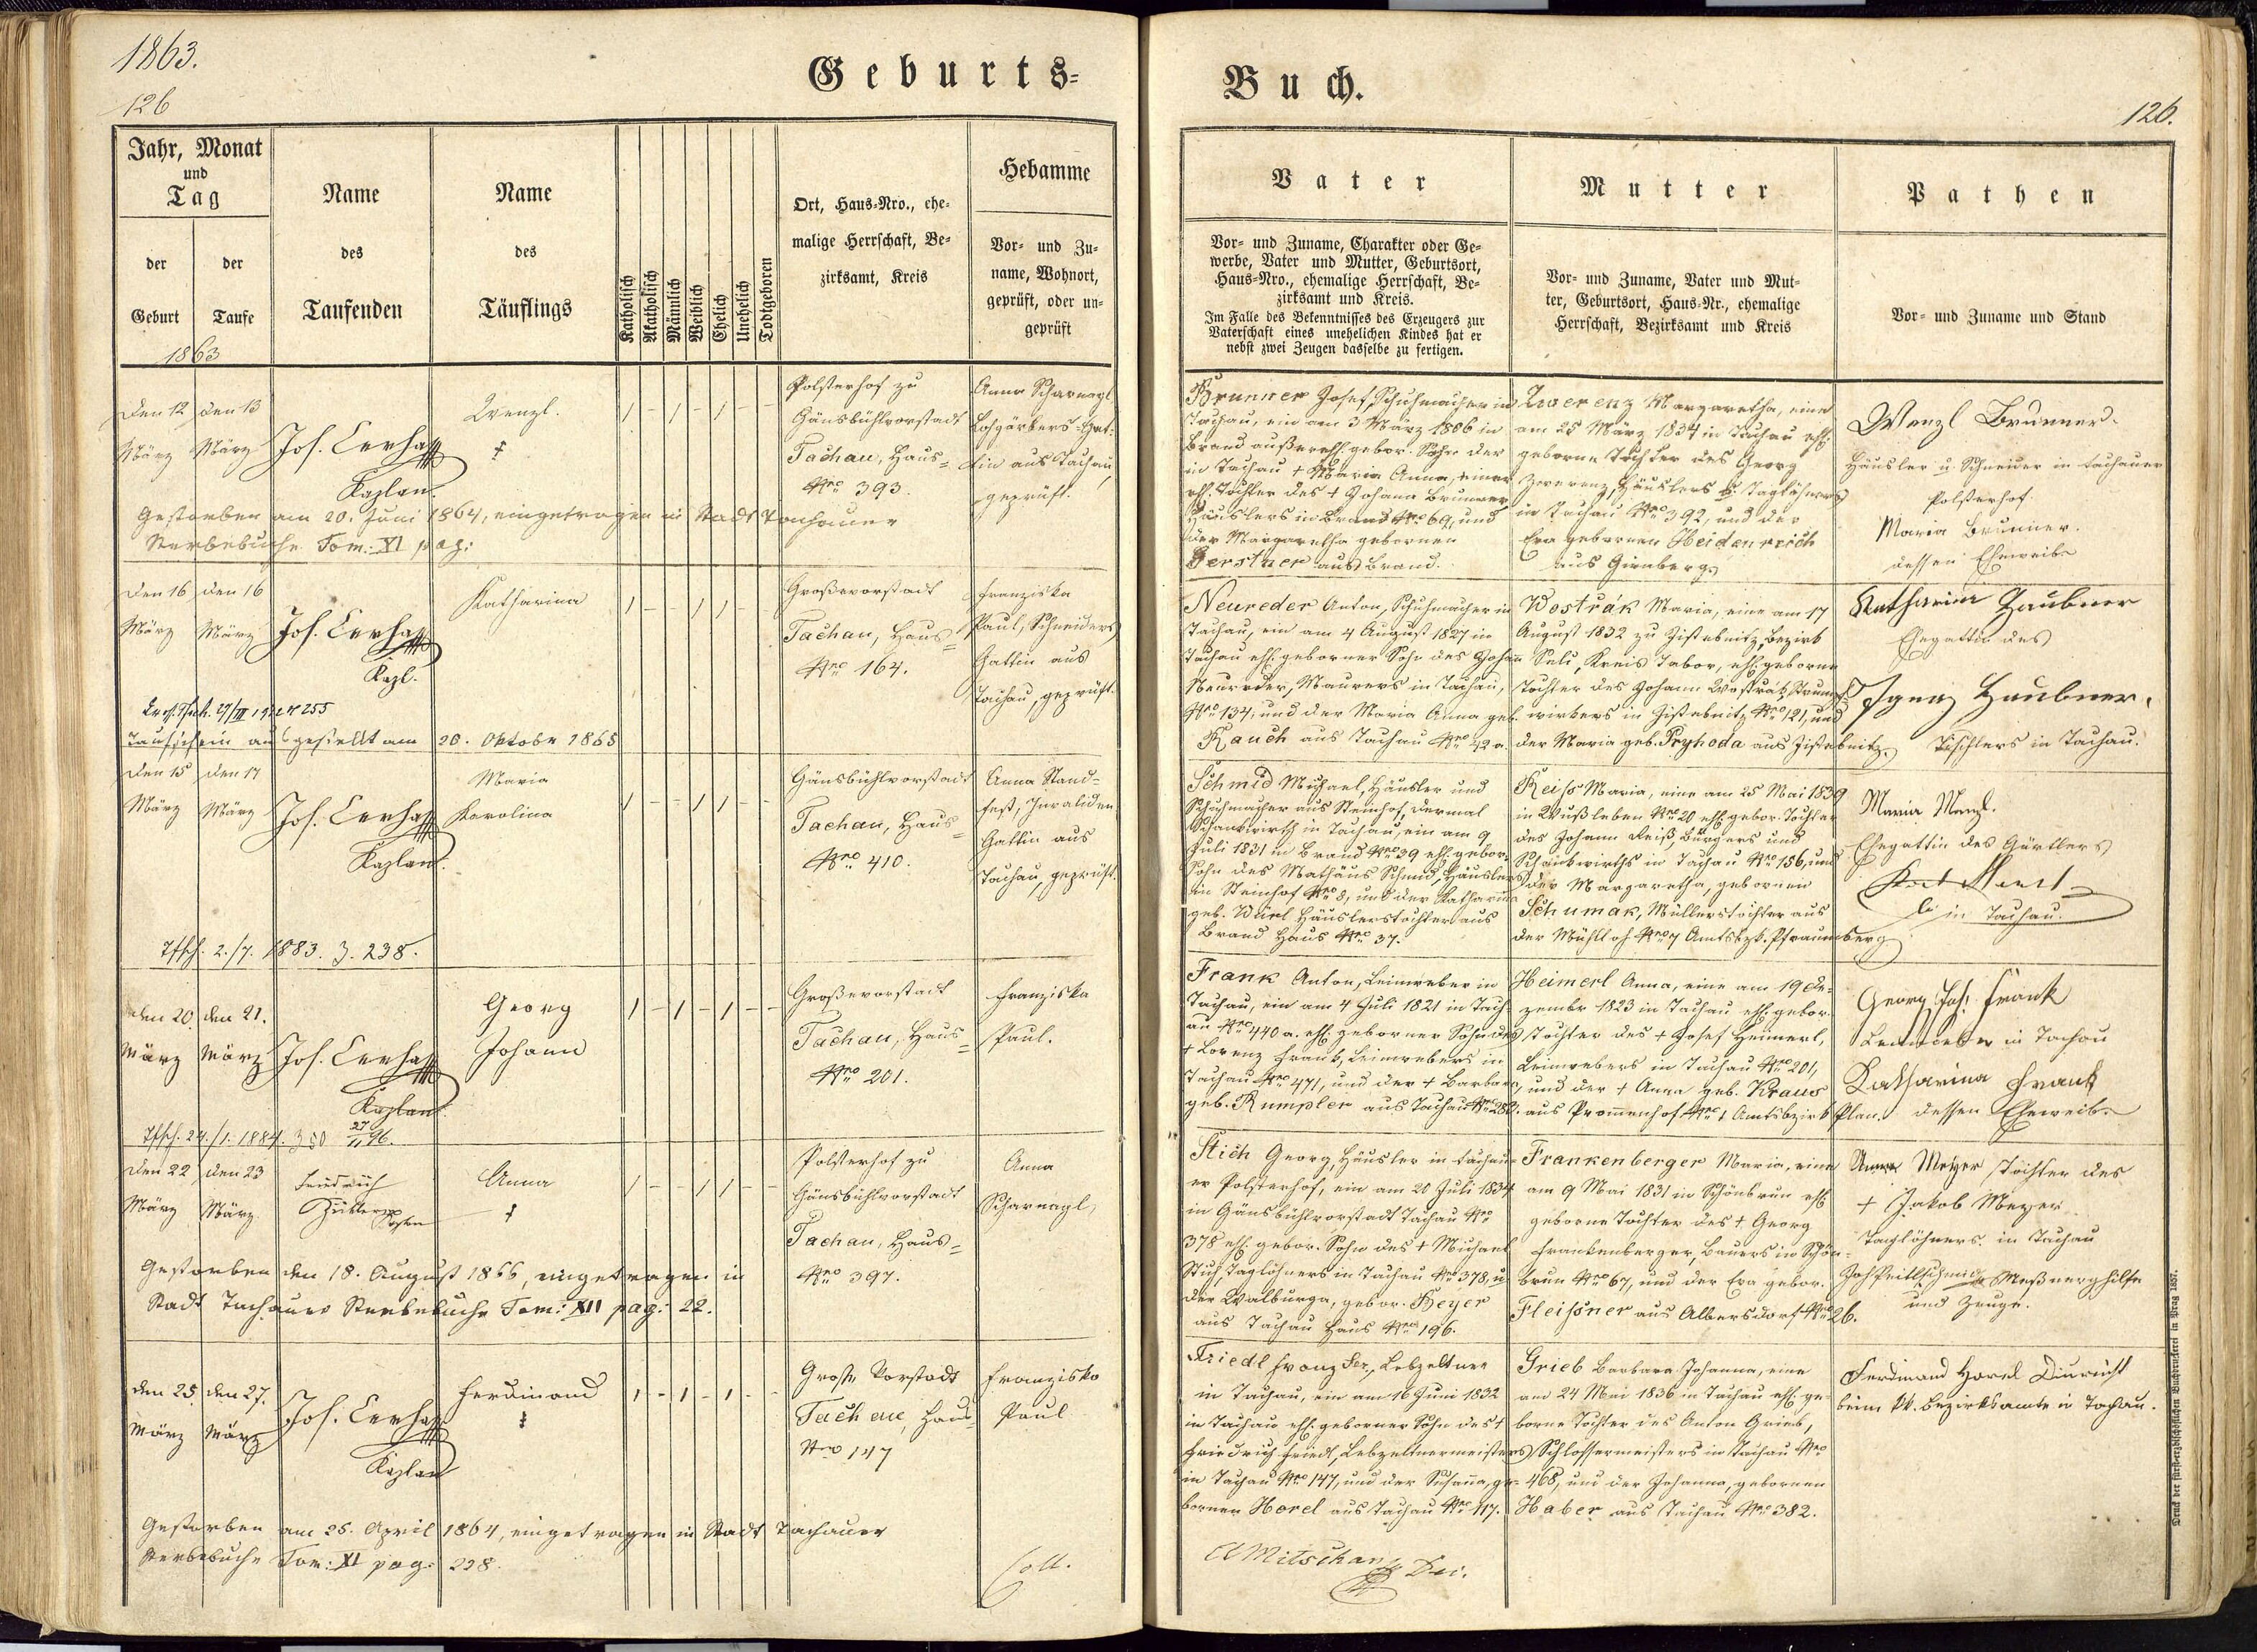 1863.
126
Geburts=
Jahr, Monat
und
Tag
der
Geburt
der
Taufe
1863
Name
des
Taufenden
Name
des
Täuflings
Katholisch
Akatholisch
Männlich
Weiblich
Ehelich
Unehelich
Todtgeboren
Ort, Haus=Nro., ehe=
malige Herrschaft, Be=
zirksamt, Kreis
Hebamme
Vor= und Zu=
name, Wohnort,
geprüft, oder un=
geprüft
Den 12 den 13
März März
Jos. Cerha
Kaplan.
Wenzl.
‡
1 - 1 - 1 - -
Polsterhof zu
Gänsbühlvorstadt
Tachau, Haus=
Nro 393.
Anna Scharnagl
Lohgärbers=Gat=
tin aus Tachau,
geprüft.
Gestorben am 20. Juni 1864, eingetragen in Stadt Tachauer
Sterbebuche Tom: XI pag:
Den 16 den 16
März März
Jos. Cerha
Kapl.
Katharina
1 - - 1 1 -
Großevorstadt
Tachau, Haus=
Nro 164.
Franziska
Paul, Schneiders
Gattin aus
Tachau, geprüft.
Taufschein ausgestellt am 20. Oktober 1865
Den 15 den 17
März März
Jos. Cerha
Kaplan.
Maria
Karolina
1 - - 1 1 - -
Gänsbühlvorstadt
Tachau, Haus=
Nro 410.
Anna Stand=
fest, Invaliden
Gattin aus
Tachau, geprüft.
Tfsch. 2./7. 1883. Z. 238.
den 20. den 21.
März März
Jos. Cerha
Kaplan.
Georg
Johann
1 - 1 - 1 - -
Großevorstadt
Tachau, Haus=
Nro 201.
Franziska
Paul.
Tfsch. 24./1. 1884.
Den 22 den 23
März März
Friedrich
Anna
‡
1 - - 1 1 - -
Polsterhof zu
Gänsbühlvorstadt
Tachau, Haus=
Nro 397.
Anna
Scharnagl,
Gestorben den 18. August 1866, eingetragen in
Stadt Tachauer Sterbebuche Tom: XII pag: 22.
den 25. den 27.
März März
Jos. Cerha
Kaplan
Ferdinand
‡
1 - 1 - 1 - -
Große Vorstadt
Tachau, Haus
Nro 147
Franziska
Paul
Gestorben am 25. April 1864, eingetragen in Stadt Tachauer
Sterbebuche Tom: XI pag: 228.
Coll.
Buch.
126.
Vater
Vor= und Zuname, Charakter oder Ge=
werbe, Vater und Mutter, Geburtsort,
Haus=Nro., ehemalige Herrschaft, Be=
zirksamt und Kreis.
Im Falle des Bekenntnisses des Erzeugers zur
Vaterschaft eines unehelichen Kindes hat er
nebst zwei Zeugen dasselbe zu fertigen.
Mutter
Vor= und Zuname, Vater und Mut=
ter, Geburtsort, Haus=Nr., ehemalige
Herrschaft, Bezirksamt und Kreis
Pathen
Vor= und Zuname und Stand
Brunner Josef, Schuhmacher in
Tachau, ein am 3 März 1806 in
Brand außerehl. gebor. Sohn der
in Tachau + Maria Anna, einer
ehl. Tochter des + Johann Brunner
Häuslers in Brand Nro 69, und
der Margaretha gebornen
Gerstner aus Brand.
Zwerenz Margaretha, eine
am 25 März 1834 in Tachau ehl.
geborne Tochter des Georg
Zwerenz, Häuslers u. Taglöhners
in Tachau Nro 392, und der
Eva gebornen Heidenreich
aus Girnberg.
Wenzl Brunner.
Häusler u. Schneider in Tachauer
Polsterhof.
Maria Brunner.
dessen Eheweibe
Neureder Anton, Schuhmacher in
Tachau, ein am 4 August 1827 in
Tachau ehl. geborner Sohn des Johann
Neureder, Maurers in Tachau,
Nro 134, und der Maria Anna geb.
Rauch aus Tachau Nro 42 a.
Wostřak Maria, eine am 17
August 1832 zu Jistebnitz, Bezirk
Kreis Tabor, ehl. geborne
Tochter des Johann Wostřak, Strumpf=
wirkers in Jistebnitz Nro 121, und
der Maria geb. Pryhoda aus Jistebnitz.
Katharina Haubner
Ehegattin des
Ignaz Haubner.
Tischlers in Tachau.
Schmid Michael, Häusler und
Schuhmacher aus Steinhof, dermal
Schankwirth in Tachau, ein am 9
Juli 1831 in Brand Nro 39 ehl. gebor.
Sohn des Mathäus Schmid, Häuslers
in Steinhof Nro 8, und der Katharina
geb. Würl Häuslerstochter aus
Brand Haus Nro 37.
Reiß Maria, eine am 25 Mai 1839
in Wußleben Nro 20 ehl. gebor. Tochter
des Johann Reiß, Bürgers und
Schankwirths in Tachau Nro 156, und
der Margaretha, gebornen
Schumak, Müllerstochter aus
der Mühlloh Nro 7 Amtsbzk. Pfraumberg
Maria
Ehegattin des Gärtlers
in Tachau.
Frank Anton, Leinweber in
Tachau, ein am 4 Juli 1821 in Tach=
au Nro 440 a. ehl. geborner Sohn des
+ Lorenz Frank, Leinwebers in
Tachau Nro 471, und der + Barbara,
geb. Rumpler aus Tachau Nro 282.
Heimerl Anna, eine am 19 De=
zember 1823 in Tachau ehl. gebor.
Tochter des + Josef Heimerl,
Leinwebers in Tachau Nro 201,
und der + Anna geb. Kraus
aus Promenhof Nro 1 Amtsbezirk Plan.
Georg Joh. Frank
Leinweber in Tachau
Katharina Frank
dessen Eheweibe
Stich Georg, Häusler in Tachau=
er Polsterhof, ein am 20 Juli 1834
in Gänsbühlvorstadt Tachau Nro
378 ehl. gebor. Sohn des + Michael
Stich, Taglöhners in Tachau Nro 378, u.
der Walburga, gebor. Beyer
aus Tachau Haus Nro 196.
Frankenberger Maria, eine
am 9 Mai 1831 in Schönbrun ehl.
geborne Tochter des + Georg
Frankenberger, Bauers in Schön=
brun Nro 67, und der Eva gebor.
Fleißner aus Albersdorf Nro 26.
Anna Meyer Tochter des
+ Jakob Meyer
Taglöhners in Tachau
Meßnerghilfe
und Zeuge.
Friedl Franz Ser., Lebzeltner
in Tachau, ein am 16 Juni 1832
in Tachau ehl. geborner Sohn des +
Friedrich Friedl, Lebzeltnermeisters
in Tachau Nro 147, und der Susanna, ge=
bornen Horel aus Tachau Nro 117.
Grieb Barbara Johanna, eine
am 24 Mai 1836 in Tachau ehl. ge=
borne Tochter des Anton Grieb,
Schlossermeisters in Tachau Nro
468, und der Johanna, gebornen
Haber aus Tachau Nro 382.
Ferdinand Horel Diurnist
beim kk. Bezirksamte in Tachau.
Druck der fürsterzbischöflichen Buchdruckerei in Prag 1857.